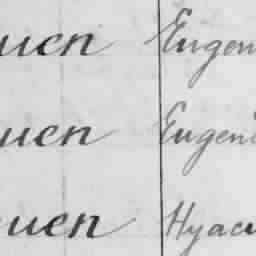 uen Eugen
uen Eugen
uen Hyac